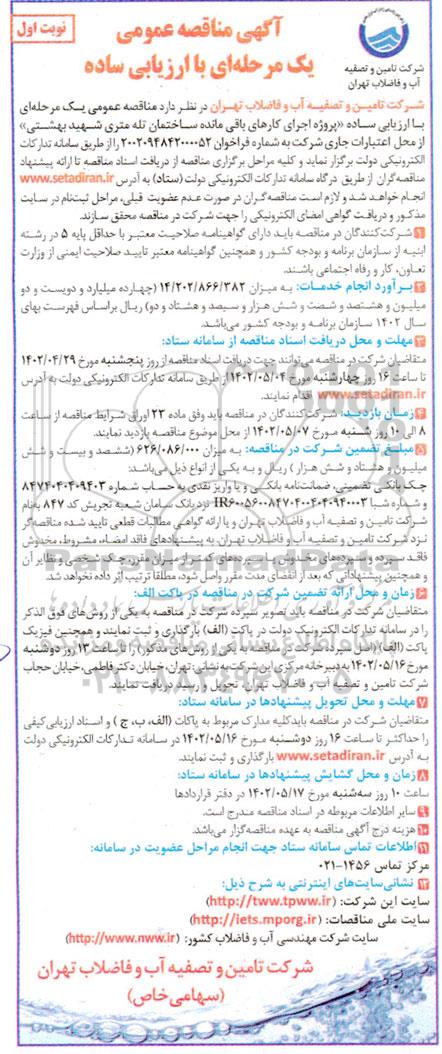 نوبت اول
آگهی مناقصه عمومی
یک مرحله‌ای با ارزیابی ساده
شرکت تامین و تصفیه
آب و فاضلاب تهران
شرکت تامین و تصفیه آب و فاضلاب تهران در نظر دارد مناقصه عمومی یک مرحله‌ای
با ارزیابی ساده «پروژه اجرای کارهای باقی مانده ساختمان تله متری شهید بهشتی»
از محل اعتبارات جاری شرکت به شماره فراخوان ۲۰۰۲۰۹۴۸۴۲۰۰۰۰۵۲ را از طریق سامانه تدارکات
الکترونیکی دولت برگزار نماید و کلیه مراحل برگزاری مناقصه از دریافت اسناد مناقصه تا ارائه پیشنهاد
مناقصه‌گران از طریق درگاه سامانه تدارکات الکترونیکی دولت (ستاد) به آدرس www.setadiran.ir
انجام خواهد شد و لازم است مناقصه‌گران در صورت عدم عضویت قبلی، مراحل ثبت‌نام در سایت
مذکور و دریافت گواهی امضای الکترونیکی را جهت شرکت در مناقصه محقق سازند.
۱ شرکت‌کنندگان در مناقصه باید دارای گواهینامه صلاحیت معتبر با حداقل پایه ۵ در رشته
ابنیه از سازمان برنامه و بودجه کشور و همچنین گواهینامه معتبر تایید صلاحیت ایمنی از وزارت
تعاون، کار و رفاه اجتماعی باشند.
۲ برآورد انجام خدمات: به میزان ۱۴/۲۰۲/۸۶۶/۳۸۲ (چهارده میلیارد و دویست و دو
میلیون و هشتصد و شصت و شش هزار و سیصد و هشتاد و دو) ریال براساس فهرست بهای
سال ۱۴۰۲ سازمان برنامه و بودجه کشور می‌باشد.
۳ مهلت و محل دریافت اسناد مناقصه از سامانه ستاد:
متقاضیان شرکت در مناقصه می‌توانند جهت دریافت اسناد مناقصه از روز پنجشنبه مورخ ۱۴۰۲/۰۴/۲۹
تا ساعت ۱۶ روز چهارشنبه مورخ ۱۴۰۲/۰۵/۰۴ از طریق سامانه تدارکات الکترونیکی دولت به آدرس
www.setadiran.ir اقدام نمایند.
۴ زمان بازدید: شرکت‌کنندگان در مناقصه باید وفق ماده ۲۳ اوراق شرایط مناقصه از ساعت
۸ الی ۱۰ روز شنبه مورخ ۱۴۰۲/۰۵/۰۷ از محل موضوع مناقصه بازدید نمایند.
۵ مبلغ تضمین شرکت در مناقصه: به میزان ۶۲۶/۰۸۶/۰۰۰ (ششصد و بیست و شش
میلیون و هشتاد و شش هزار) ریال و به یکی از انواع ذیل می‌باشد:
چک بانکی تضمینی، ضمانت‌نامه بانکی و یا واریز نقدی به حساب شماره ۸۴۷۴۰۴۰۴۰۹۴۰۳
و شماره شبا نزد بانک سامان شعبه تجریش کد ۸۴۷ به‌نام
شرکت تامین و تصفیه آب و فاضلاب تهران و یا ارائه گواهی مطالبات قطعی تایید شده مناقصه‌گر
نزد شرکت تامین و تصفیه آب و فاضلاب تهران. به پیشنهادهای فاقد امضاء، مشروط، مخدوش
فاقد سپرده و سپرده‌های مخدوش، سپرده‌های کمتر از میزان مقرر، چک شخصی و نظایر آن
و همچنین پیشنهاداتی که بعد از انقضای مدت مقرر واصل شود، مطلقا ترتیب اثر داده نخواهد شد.
۶ زمان و محل ارائه تضمین شرکت در مناقصه در پاکت الف:
متقاضیان شرکت در مناقصه باید تصویر سپرده شرکت در مناقصه به یکی از روش‌های فوق الذکر
را در سامانه تدارکات الکترونیک دولت در پاکت (الف) بارگذاری و ثبت نمایند و همچنین فیزیک
پاکت (الف) (اصل سپرده شرکت در مناقصه به یکی از روش‌های مذکور) را تا ساعت ۱۳ روز دوشنبه
مورخ ۱۴۰۲/۰۵/۱۶ به دبیرخانه مرکزی این شرکت به نشانی: تهران، خیابان دکتر فاطمی، خیابان حجاب
شرکت تامین و تصفیه آب و فاضلاب تهران، تحویل و رسید دریافت نمایند.
۷ مهلت و محل تحویل پیشنهادها در سامانه ستاد:
متقاضیان شرکت در مناقصه باید کلیه مدارک مربوط به پاکات (الف، ب، ج) و اسناد ارزیابی کیفی
را حداکثر تا ساعت ۱۶ روز دوشنبه مورخ ۱۴۰۲/۰۵/۱۶ در سامانه تدارکات الکترونیکی دولت
به آدرس www.setadiran.ir بارگذاری و ثبت نمایند.
۸ زمان و محل گشایش پیشنهادها در سامانه ستاد:
ساعت ۱۰ روز سه‌شنبه مورخ ۱۴۰۲/۰۵/۱۷ در دفتر قراردادها
۹ سایر اطلاعات مربوطه در اسناد مناقصه مندرج است.
۱۰ هزینه درج آگهی مناقصه به عهده مناقصه‌گزار می‌باشد.
۱۱ اطلاعات تماس سامانه ستاد جهت انجام مراحل عضویت در سامانه:
مرکز تماس ۱۴۵۶-۰۲۱
۱۲ نشانی سایت‌های اینترنتی به شرح ذیل:
سایت این شرکت: (http://tww.tpww.ir)
سایت ملی مناقصات: (http://iets.mporg.ir)
سایت شرکت مهندسی آب و فاضلاب کشور: (http://www.nww.ir)
شرکت تامین و تصفیه آب و فاضلاب تهران
(سهامی خاص)